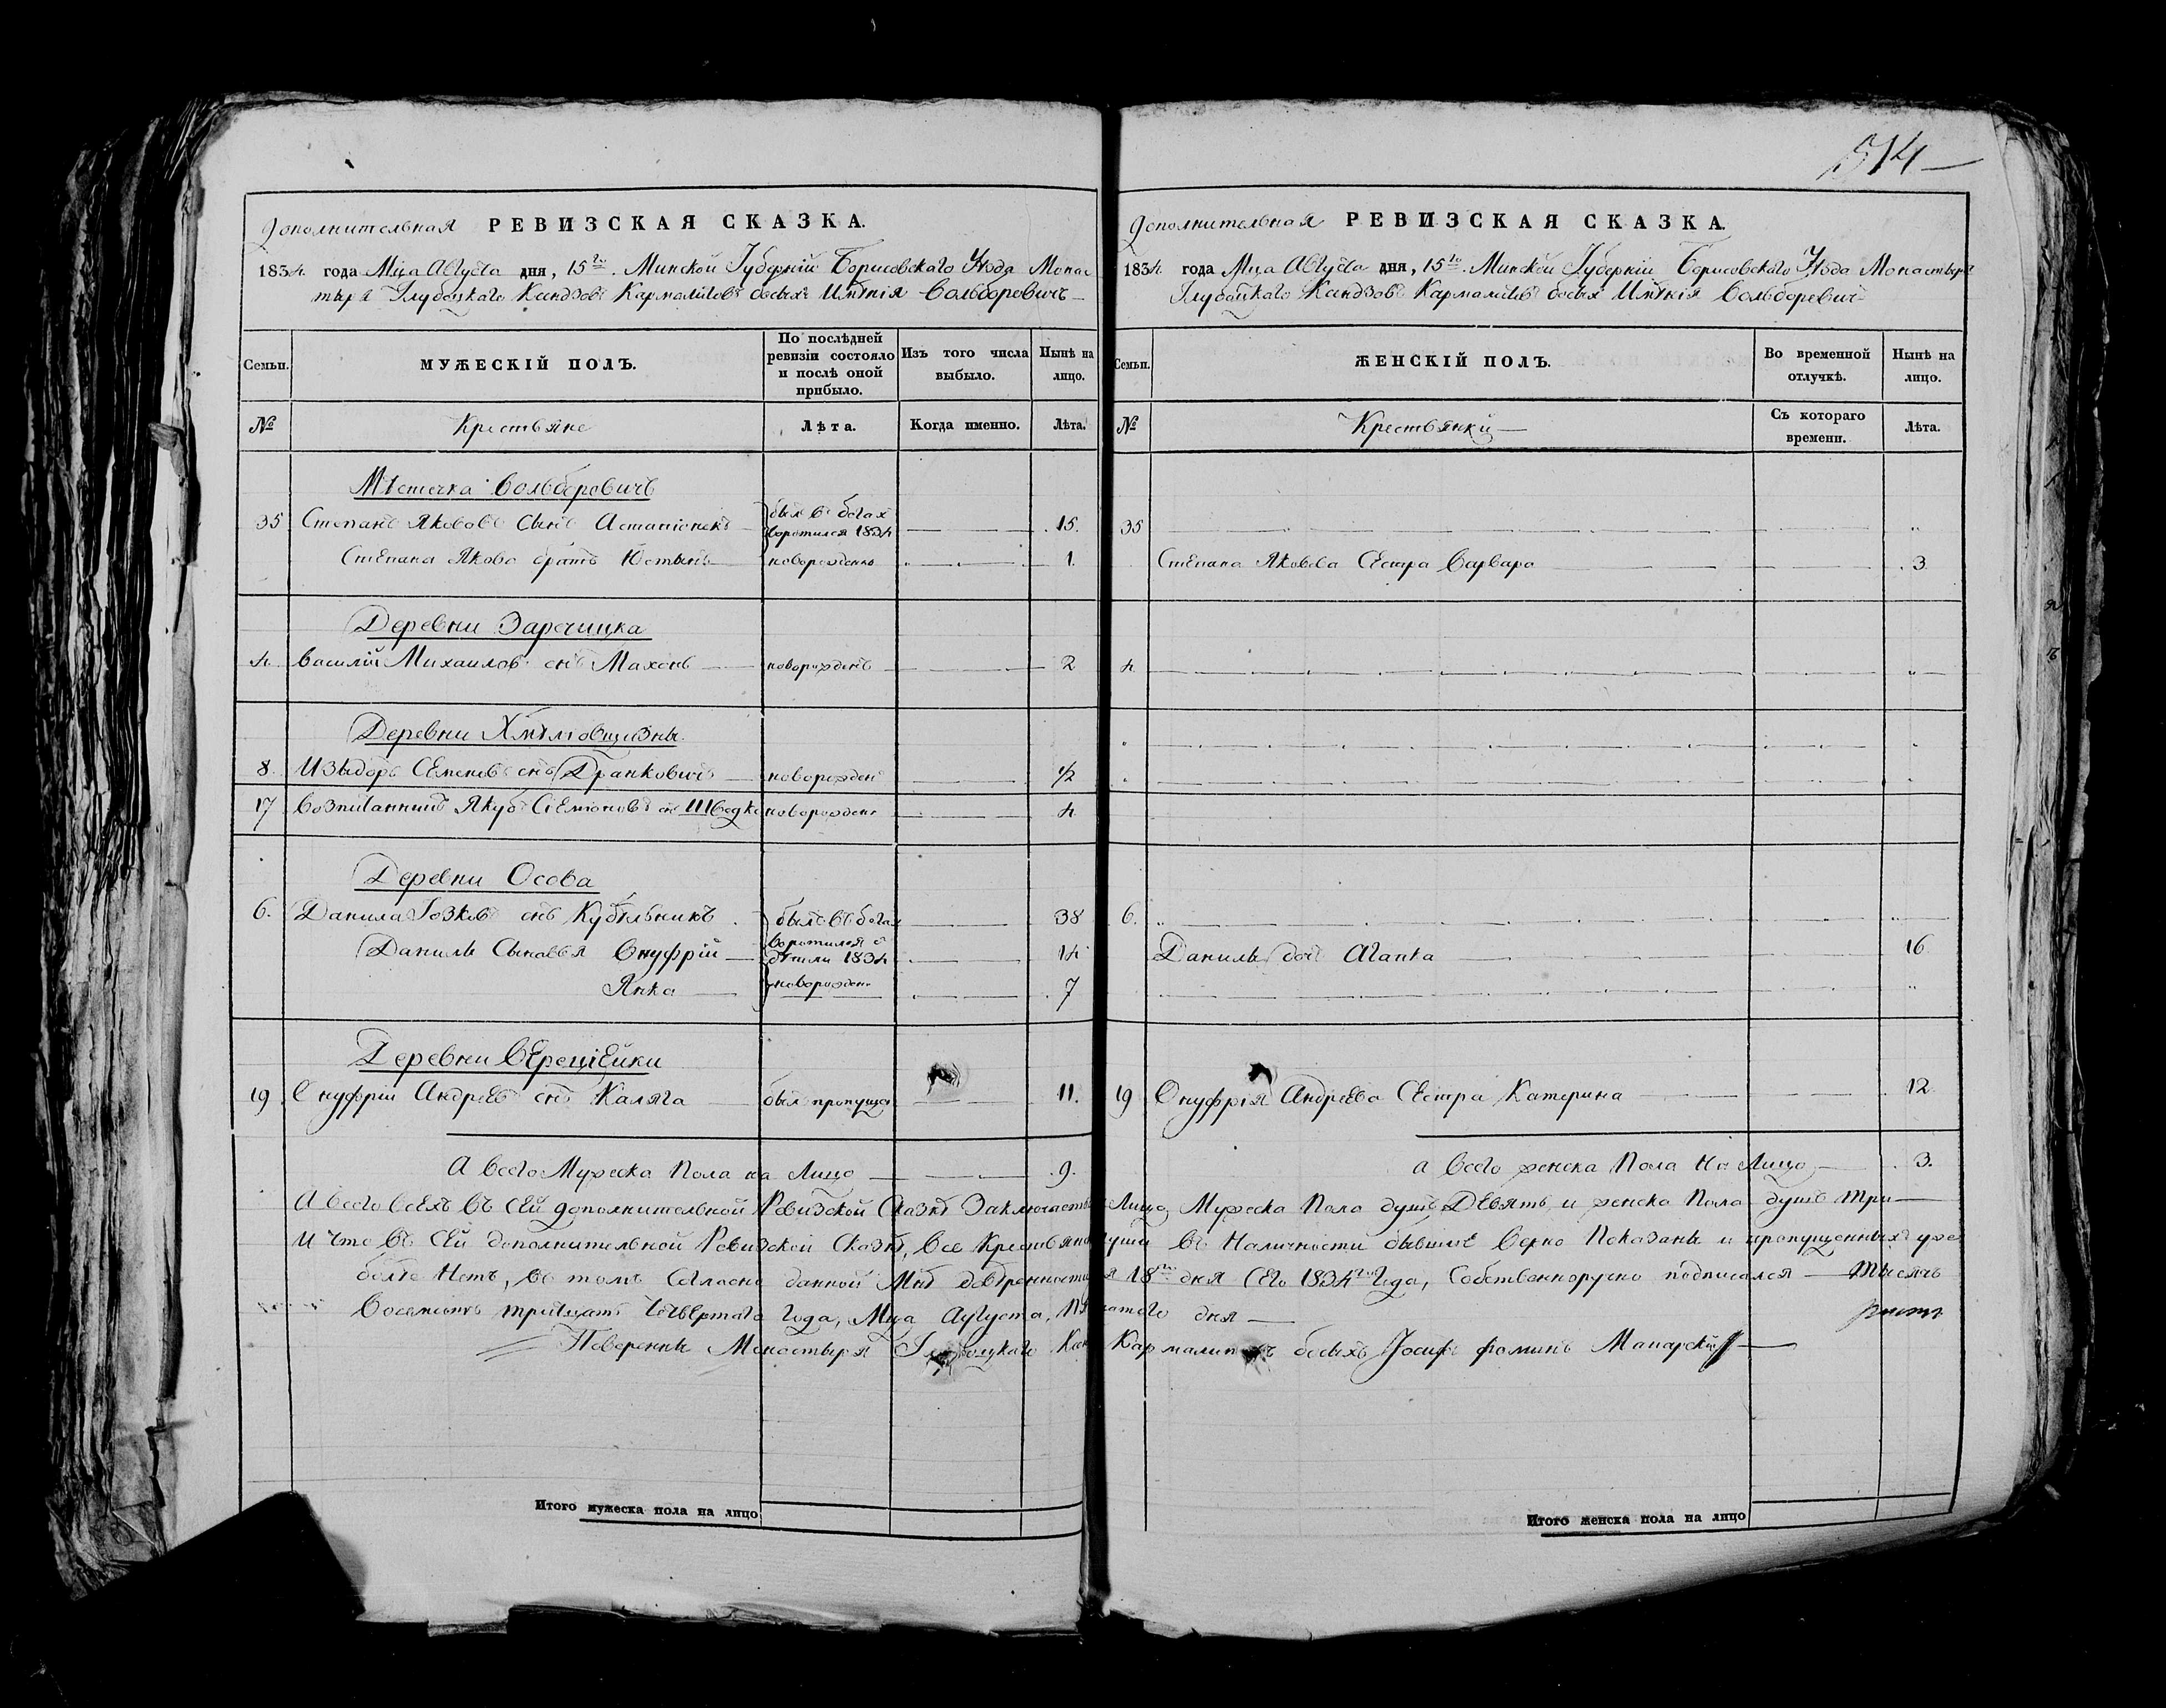 514
Дополнительная РЕВИЗСКАЯ СКАЗКА.
1834 года Мца Августа дня, 15го. Минской Губерніи Борисовскаго Уѣзда Монас
тыря Глубоцкаго Ксендзовъ Кармалитовъ босыхъ Имѣнія Вольборевичъ
Семьи.
МУЖЕСКІЙ ПОЛЪ.
По послѣдней ревизіи состояло и послѣ оной прибыло.
Изъ того числа выбыло.
Нынѣ на лицо.
№
Крестьяне
Лѣта.
Когда именно.
Лѣта.
Мѣстечка Вольборовичъ
35 Степанъ Яковавъ сынъ былъ въ бегах воротился 1834 15.
Степана Якова братъ Юстынъ новорожденъ 1.
Деревни Заречицка
4. Василій Михаиловъ снъ Махонь новорожденъ 2
Деревни Хмѣлювщизны.
8. Изыдоръ Семеновъ снъ Дранковичъ новорожден 1/2
17 Якубъ Сіеміоновъ снъ новорожден 4
Деревни Осова
6. Данила снъ былъ в бегах 38
Данилы Сыновья Онуфрій воротился с дѣтми 1834 14
Янка новорожден 7
Деревни Верещіейки
19 Онуфрій Андреевъ снъ Каляга былъ пропущен 11.
А всего Мужеска Пола на Лицо 9.
Дополнительная РЕВИЗСКАЯ СКАЗКА.
1834 года Мца Августа дня, 15го. Минской Губерніи Борисовскаго Уѣзда Монастыря
Глубоцкаго Ксендзовъ Кармалитовъ босых Имѣнія Вольборевичъ
Семьи.
ЖЕНСКІЙ ПОЛЪ.
Во временной отлучкѣ.
Нынѣ на лицо.
№
Крестьянки
Съ котораго времени.
Лѣта.
35
Степана Яковева Сестра Варвара 3
4
6.
Данилы доч Агапка 16
19 Онуфрія Андреева Сестра Катерина 12
а всего женска Пола На Лицо 3.
А всего всехъ въ сей дополнительной Ревизской Сказкѣ Заключается Лицо Мужеска Пола душъ Девять и женска Пола душъ три
И что въ Сей дополнительной Ревизской Сказкѣ, все Крестьяне души въ Наличности бывшіе Верно Показаны и пропущенныхъ уже
болѣе Нетъ, въ томъ Согласно данной Мнѣ довѣренности 18го дня Сего 1834го Года, Собственноручно подписался Тысячъ
восемьсотъ тритцать Четвертаго года, Мца Августа, дня
Поверенны Монастыря Глубоцкаго Кармалитовъ босыхъ Іосифъ фоминъ
Итого мужеска пола на лицо
Итого женска пола на лицо